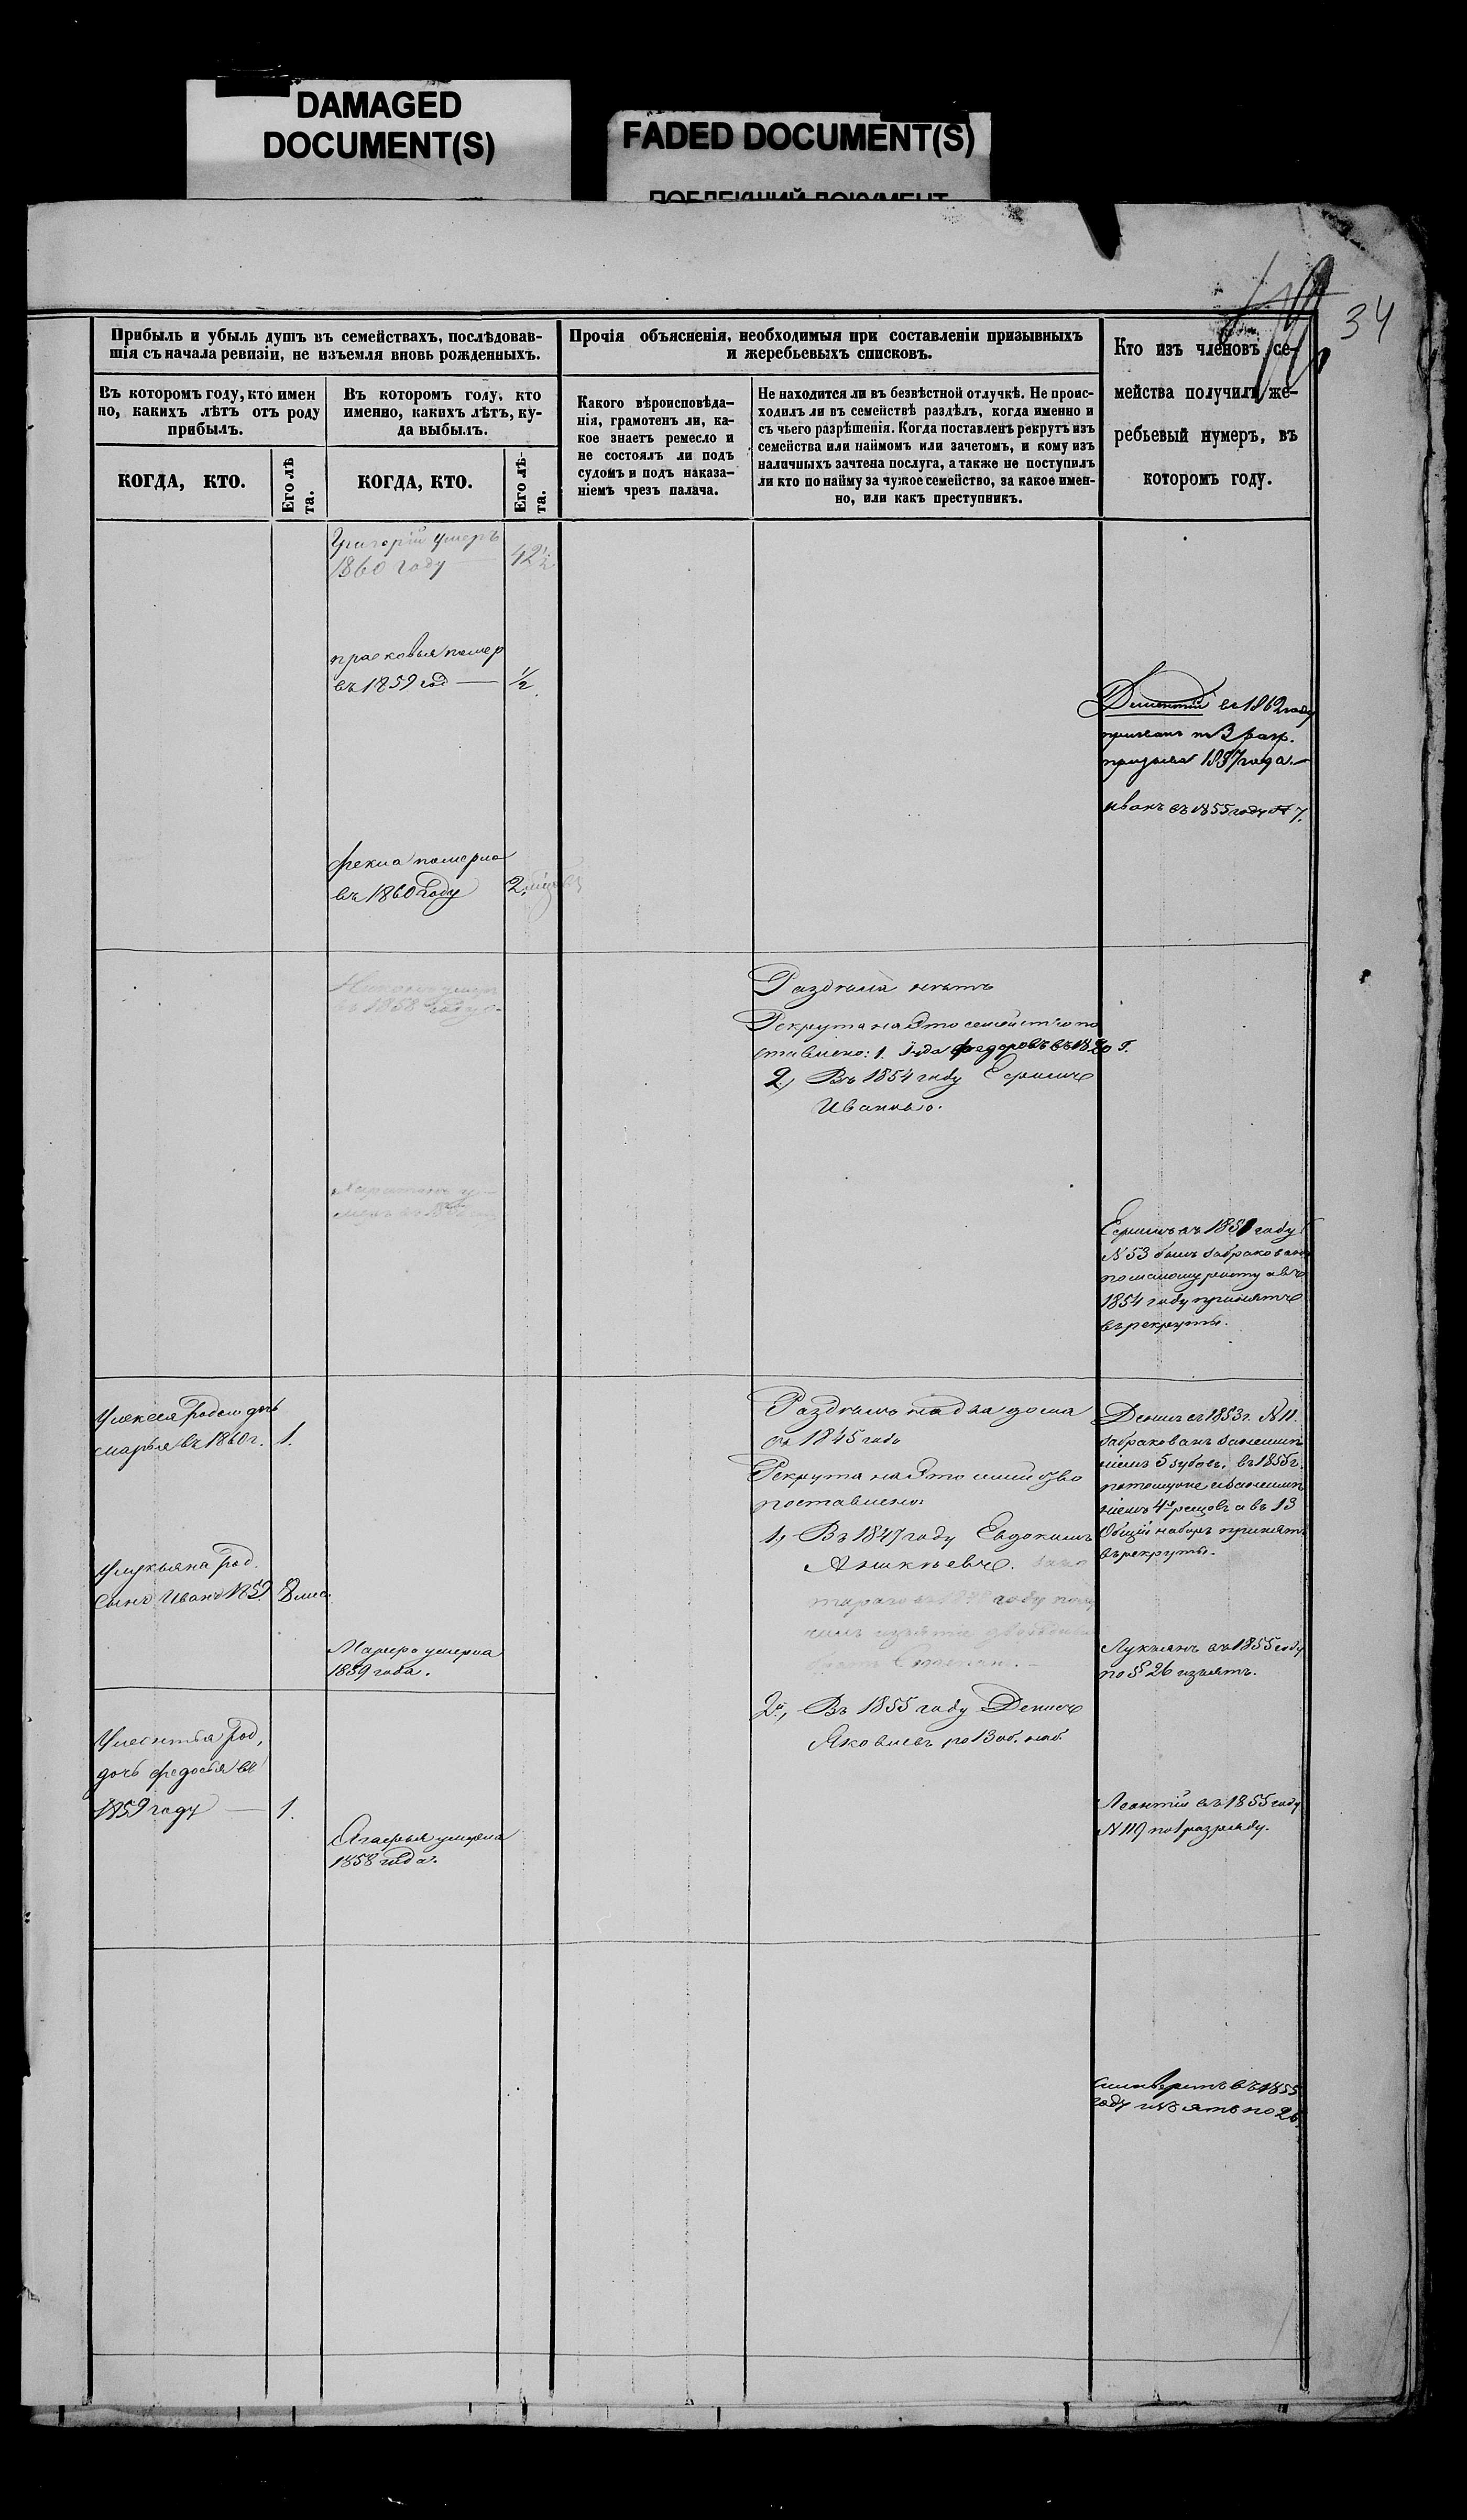 DAMAGED
DOCUMENT(S)
FADED DOCUMENT(S)
ПОБЛЕКШИЙ ДОКУМЕНТ
34
Прибыль и убыль душъ въ семействахъ, послѣдовав-
шія съ начала ревизіи, не изъемля вновь рожденныхъ.
Въ которомъ году, кто имен
но, какихъ лѣтъ отъ роду
прибылъ.
КОГДА, КТО.
Его лѣ
та.
Въ которомъ году, кто
именно, какихъ лѣтъ, ку-
да выбылъ.
КОГДА, КТО.
Его лѣ-
та.
Прочія объясненія, необходимыя при составленіи призывныхъ
и жеребьевыхъ списковъ.
Какого вѣроисповѣда-
нія, грамотенъ ли, ка-
кое знаетъ ремесло и
не состоялъ ли подъ
судомъ и подъ наказа-
ніемъ чрезъ палача.
Не находится ли въ безвѣстной отлучкѣ. Не проис-
ходилъ ли въ семействѣ раздѣлъ, когда именно и
съ чьего разрѣшенія. Когда поставленъ рекрутъ изъ
семейства или наймомъ или зачетомъ, и кому изъ
наличныхъ зачтена послуга, а также не поступилъ
ли кто по найму за чужое семейство, за какое имен-
но, или какъ преступникъ.
Кто изъ членовъ се-
мейства получилъ же-
ребьевый нумеръ, въ
которомъ году.
Григорій умеръ
1860 году — 42½
прасковья помер
въ 1859 год — ½
Дементій въ 1862 году
призыва 1857 года.—
иванъ въ 1855 году № 7.
фекла померла
въ 1860 году 2
въ 1858 году
Раздѣла нѣтъ
Рекрута на это семейство по
ставлено: 1. Іуда федоровъ въ
2, Въ 1854 году Ермилъ
Ивановъ.
Ермилъ въ 185 году
N 53 былъ забракованъ
по малому росту а въ
1854 году принятъ
въ рекруты.
У Алексея родил дочь
марья въ 1860 г. 1.
Раздѣлъ на два дома
въ 1845 году
Рекрута на это
поставлено:
1, Въ 1847 году Евдокимъ
Аникьевъ.
Денисъ въ 1853 г. N 11.
забракованъ за неимѣ
ніемъ 5 зубовъ, въ 1855 г.
потомуже и за неимѣ
ніемъ 4 а въ 13
общій наборъ принятъ
въ рекруты.
У лукьяна род.
сынъ Иванъ 1859 8 мес.
Марфа умерла
1859 года.
Лукьянъ въ 1855 году
по § 26 изъятъ.
2, Въ 1855 году Денисъ
Яковлевъ по 13 об. наб.
У леонтья род,
дочь федосья въ
1859 году — 1.
Агафья умерла
1858 года.
Леонтій въ 1855 году
N 119 по 1 разряду.
въ 1855
году изъятъ по 26.